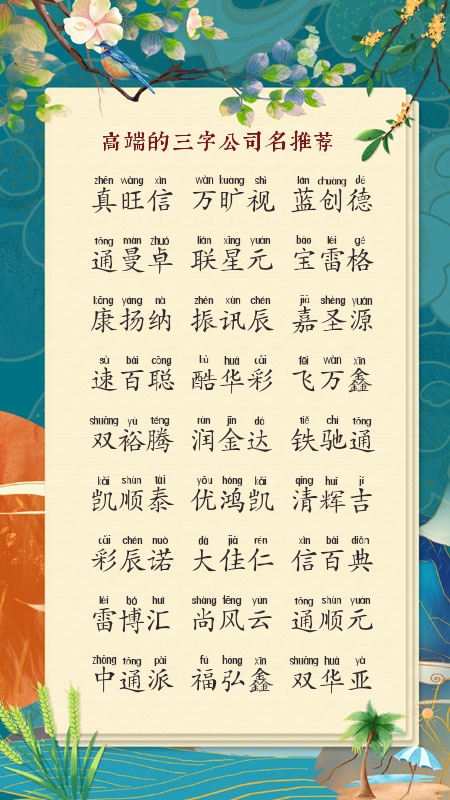 高端的三字公司名推荐
zhēn wàng xìn wàn kuàng shì lán chuàng dé
真旺信 万旷视 蓝创德
tōng màn zhuó lián xīng yuán bǎo léi gé
通曼卓 联星元 宝雷格
kāng yáng nà zhèn xùn chén jiā shèng yuán
康扬纳 振讯辰 嘉圣源
sù bǎi cōng kù huá cǎi fēi wàn xīn
速百聪 酷华彩 飞万鑫
shuāng yù téng rùn jīn dá tiě chí tōng
双裕腾 润金达 铁驰通
kǎi shùn tài yōu hóng kǎi qīng huī jí
凯顺泰 优鸿凯 清辉吉
cǎi chén nuò dà jiā rén xìn bǎi diǎn
彩辰诺 大佳仁 信百典
léi bó huì shàng fēng yún tōng shùn yuán
雷博汇 尚风云 通顺元
zhōng tōng pài fú hóng xīn shuāng huá yà
中通派 福弘鑫 双华亚